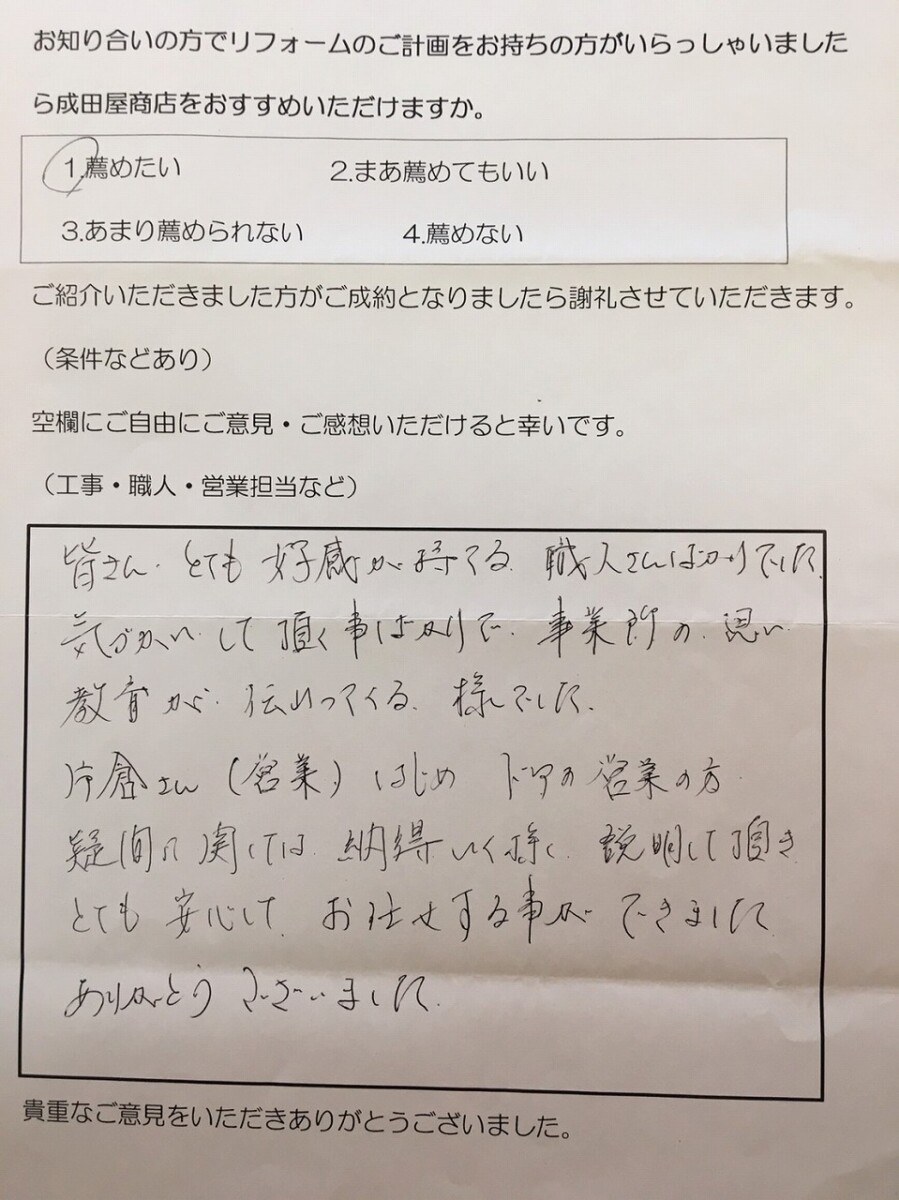 お知り合いの方でリフォームのご計画をお持ちの方がいらっしゃいました
ら成田屋商店をおすすめいただけますか。
1.薦めたい 2.まあ薦めてもいい
3.あまり薦められない 4.薦めない
ご紹介いただきました方がご成約となりましたら謝礼させていただきます。
（条件などあり）
空欄にご自由にご意見・ご感想いただけると幸いです。
（工事・職人・営業担当など）
皆さん、とても好感が持てる職人さんばかりでした。
気づかいして頂く事ばかりで、事業所の思い
教育が伝わってくる様でした。
片倉さん（営業）はじめ ドアの営業の方
疑問に関しては納得いく様に説明して頂き
とても安心してお任せする事ができました
ありがとうございました。
貴重なご意見をいただきありがとうございました。